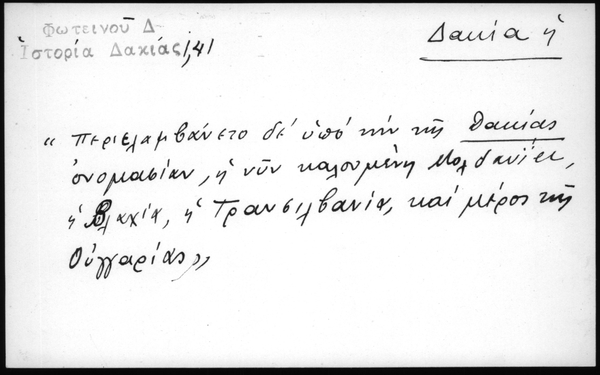 Φωτεινοῦ Δ-
Ἱστορία Δακίας 1,41
Δακία ἡ
“ Περιελαμβάνετο δὲ ὑπὸ τὴν τῆς Δακίας
ὀνομασίαν, ἡ νῦν καλουμένη Μολδαυΐα,
ἡ Βλαχία, ἡ Τρανσιλβανία, καὶ μέρος τῆς
Οὐγγαρίας„